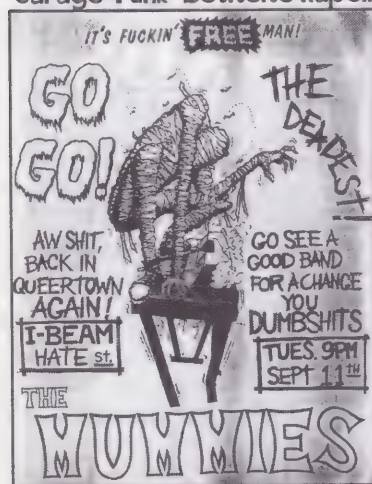 IT'S FUCKIN' FREE MAN!
GO
GO!
THE
DEADEST!
AW SHIT,
BACK IN
QUEERTOWN
AGAIN!
I-BEAM
HATE st.
GO SEE A
GOOD BAND
FOR A CHANGE
YOU
DUMBSHITS
TUES. 9PM
SEPT 11TH
THE
MUMMIES